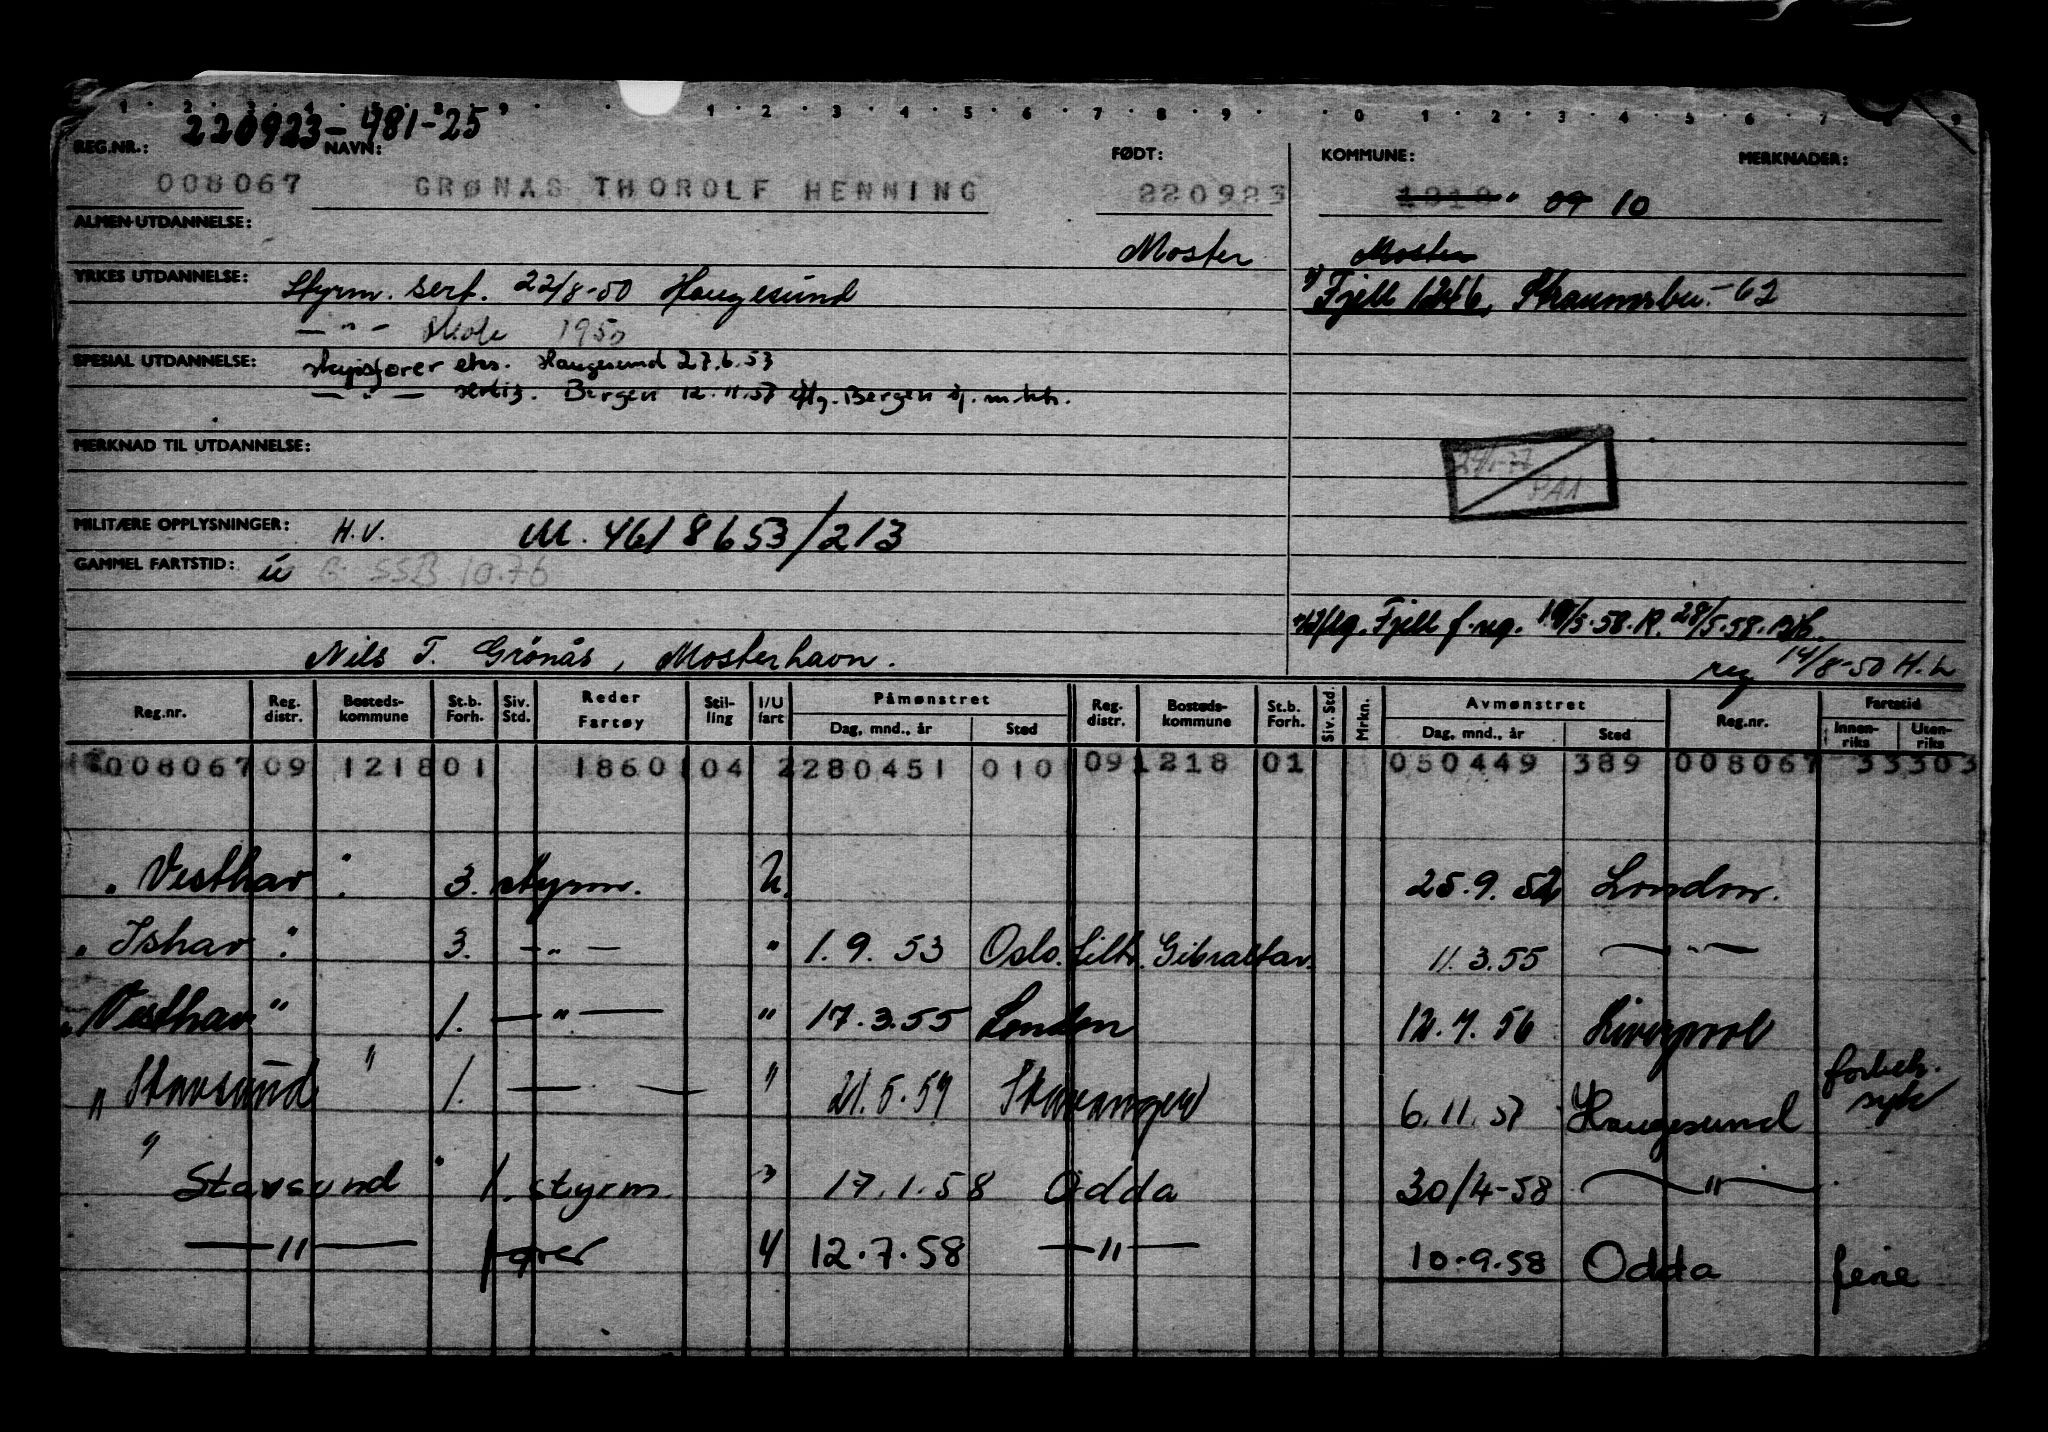 220923-48125
REG.NR.: NAVN: FØDT: KOMMUNE: MERKNADER:
008067 GRØNÅS THOROLF HENNING 220923 1218 09 10
ALMEN-UTDANNELSE: Moster Moster
YRKES UTDANNELSE: Styrm. sert. 22/8-50 Haugesund Fjell 1246, Straumsbu. -62
— " — skole 1950
SPESIAL UTDANNELSE: skipsfører eks. Haugesund 27.6.53
— " — sertif. Bergen 12.11.57 iflg. Bergen sj.m.ktr.
MERKNAD TIL UTDANNELSE:
29/1-77
PA1
MILITÆRE OPPLYSNINGER: H.V. M. 4618653/213
GAMMEL FARTSTID: SSB 10.76
Fjell f.reg. 19/5.58. R. 28/5.58.
Nils T. Grönås, Mosterhavn. reg 14/8-50 H.L
Reg.nr. Reg. distr. Bosteds-kommune St.b. Forh. Siv. Std. Reder Fartøy Stil-ling I/U fart Påmønstret Dag, mnd., år Sted Reg. distr. Bosteds-kommune St.b. Forh. Siv. Std. Mrkn. Avmønstret Dag, mnd., år Sted Reg.nr. Fartstid Innen-riks Uten-riks
008067 09 1218 01 1860 04 2 280451 010 09 1218 01 050449 389 008067 33303
" Vesthav " 3. styrm. U. 25.9.52 London.
" Ishav " 3. — " — " 1.9.53 Oslo. tiltr. Gibraltar. 11.3.55 — " —
" Vesthav " 1. — " — " 17.3.55 London 12.7.56 Liverpool
" Stavsund " 1. — — " 21.5.57 Stavanger 6.11.57 Haugesund forbek. syk
" Stavsund " 1. styrm. " 17.1.58 Odda 30/4-58 — " —
— " — fører U 12.7.58 — " — 10.9.58 Odda ferie